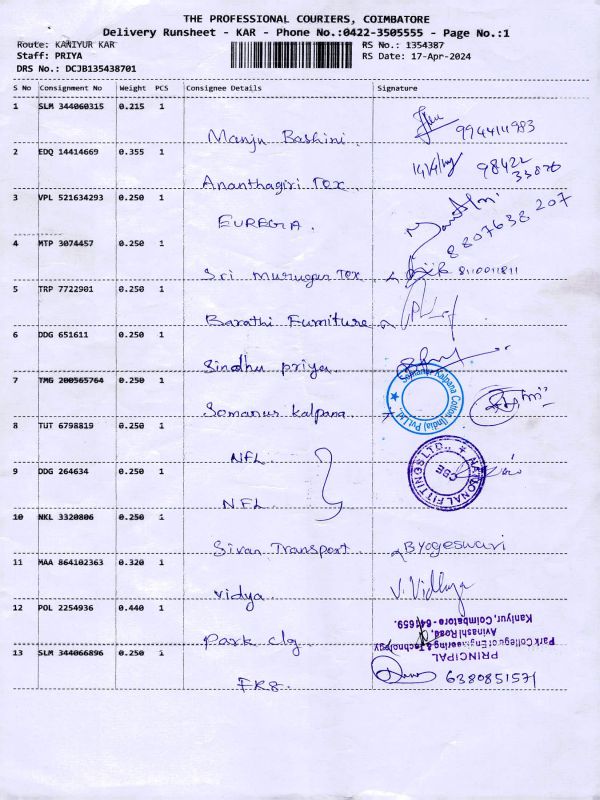 THE PROFESSIONAL COURIERS, COIMBATORE
Delivery Runsheet - KAR - Phone No.:0422-3505555 - Page No.:1
Route: KANIYUR KAR RS No.: 1354387
Staff: PRIYA RS Date: 17-Apr-2024
DRS No.: DCJB135438701
S No Consignment No Weight PCS Consignee Details Signature
1 SLM 344060315 0.215 1
Manju Bashini 9944111983
2 EDQ 14414669 0.355 1
98422
33876
Ananthagiri Tex
3 VPL 521634293 0.250 1
EUREGIA. 8807638207
4 MTP 3074457 0.250 1
Sri Murugan Tex 8110011811
5 TRP 7722901 0.250 1
Barathi Furniture
6 DDG 651611 0.250 1
Sindhu priya.
7 TMG 200565764 0.250 1
Somanur Kalpana Cotton (India) Pvt. Ltd.,
Somanur kalpana
8 TUT 6798819 0.250 1
NFL
NATIONAL FITTINGS LTD.,
CBE
9 DDG 264634 0.250 1
NFL
10 NKL 3320806 0.250 1
Sivan Transport BYogeswari
11 MAA 864102363 0.320 1
vidya V. Vidhya
12 POL 2254936 0.440 1
Park clg
PRINCIPAL
Park College of Engineering & Technology
Avinashi Road,
Kaniyur, Coimbatore - 641659.
13 SLM 344066896 0.250 1
6380851571
FRS.